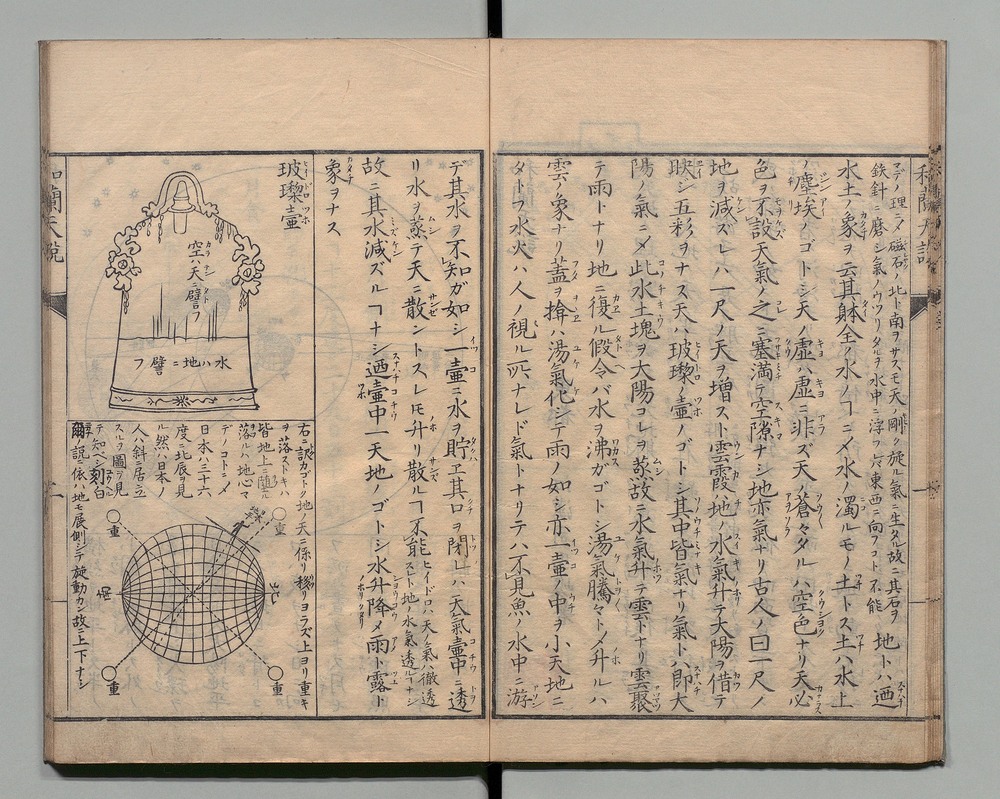 和蘭天説
マデノ理ニメ磁石ノ北ト南ヲサスモ天ノ剛ク旋ル氣ニ生タル故ニ其石ヲ
鉄針ニ磨シ氣ノウツリタルヲ水中ニ浮フ六東西ニ向フコト不能
地トハ迺
水土ノ象ヲ云其躰全ク水ノヿニメ水ノ濁ルモノ土トス土ハ水上
ノ塵埃ノゴトシ天ノ虚ハ虚ニ非ズ天ノ蒼々タルハ空色ナリ天必
色ヲ不設天氣ノ之ニ塞満テ空隙ナシ地亦氣ナリ古人ノ曰一尺ノ
地ヲ減ズレハ一尺ノ天ヲ増スト雲霞ハ地ノ水氣升テ大陽ヲ借テ
映シ五彩ヲナス天ハ玻瓈壷ノゴトシ其中皆氣ナリ氣トハ即大
陽ノ氣ニメ此水土塊ヲ大陽コレヲ蒸故ニ水氣升テ雲トナリ雲聚
テ雨トナリ地ニ復ル假令バ水ヲ沸ガゴトシ湯氣騰々トメ升ルハ
雲ノ象ナリ蓋ヲ揜ハ湯氣化シテ雨ノ如シ亦一壷ノ中ヲ小天地ニ
タトフ水火ハ人ノ視ル所ナレド氣トナリテハ不見魚ノ水中ニ游
デ其水ヲ不知ガ如シ一壷ニ水ヲ貯ヱ其口ヲ閉レハ天氣壷中ニ透
リ水ヲ蒸テ天ニ散ントスレ𪜈升リ散ルヿ不能
ヒイドロハ天ノ氣ハ徹透
スレト地ノ水氣透ルヿナシ
故ニ其水減ズルヿナシ迺壷中一天地ノゴトシ水升降メ雨ト露ト
象ヲナス
玻瓈壷
空ハ天ニ譬フ
水ハ地ニ譬フ
右ニ説カゴトク地ノ天ニ係リ移リヨラズ上ヨリ重キ
ヲ落ストキハ
皆地上ニ随ル
落ルハ地心マ
デノコトニメ
日本ハ三十六
度ニ北辰ヲ見
ル然ハ日本ノ
人ハ斜ニ居ニ立
スルヲ圖ヲ見
テ知ベシ刻白
爾ノ説ニ依ハ地モ展側シテ旋動カシ故ニ上下ナシ
重
重
重
重
北
南
和蘭天説